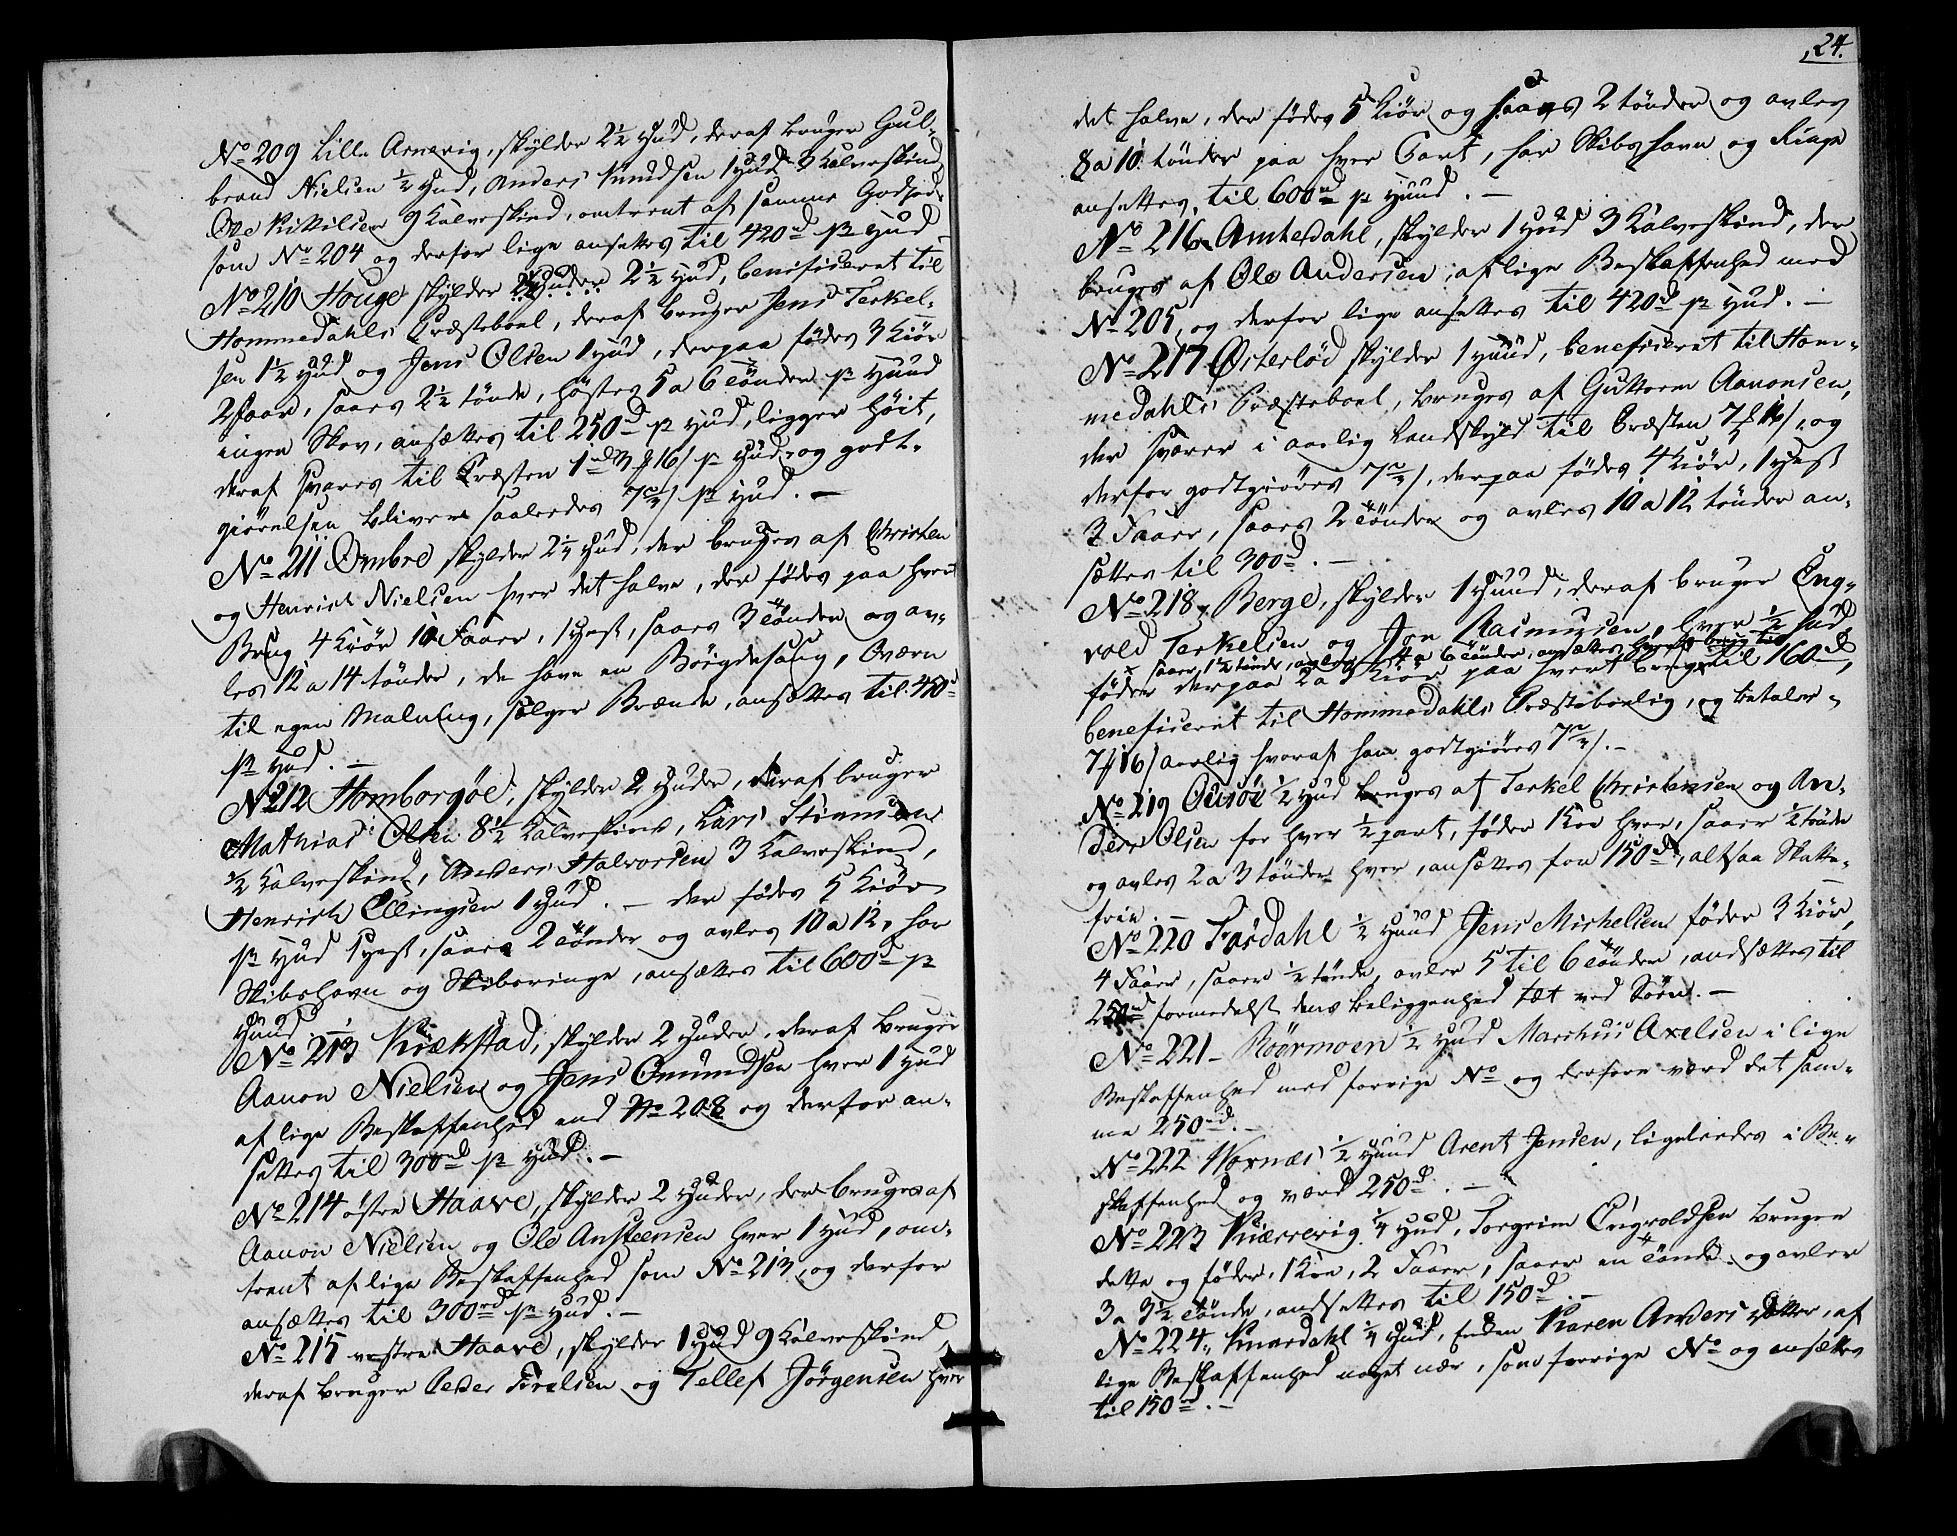 No 209 Lille Arnevig, skylder 2½ Hud, deraf bruger Gul-
brand Nielsen ½ Hud, Anders Knudsen 1 Hud 3 Kalveskind
Ove Kittilsen 9 Kalveskind, omtrent af samme Godhed
som No 204 og derfor lige ansettes til 420rd pr Hud
No 210 Houge skylder 2½ Hud, benificeret til
Hommedahls Præsteboel, deraf bruger Jens Terkel-
sen 1½ Hud og Jens Olsen 1 Hud, derpaa fødes 3 Kiör
2 Faar, saaes 2½ tönde, höstes 5 a 6 tönder pr Huud
ingen Skov, ansættes til 250rd pr Hud, ligger höit,
deraf svares til Præsten 1rd 3 ₰ 16 s pr Hud, og godt-
giörelsen bliver saaledes s pr Hud. —
No 211 Ombre skylder 2¼ Hud, der bruges af Christen
og Henrich Nielsen hver det halve, der födes paa hvert
Brug 4 Kiör 10 Faar, 1 Hest, saaes 3 tönder og av-
les 12 a 14 tönder, de have en Bögdesaug, Qværn
til egen Malning, sælger Brænde, ansættes til 410rd
pr Hud. —
No 212 Homborgöe, skylder 2 Huder, deraf bruger
Mathias Olsen 8½ Kalveskind, Lars
½ Kalveskind, Anders Halvorsen 3 Kalveskind,
Henrich Ellingsen 1 Hud. — der födes 5 Kiör
pr Hud 1 Hest, saaes 2 tönder og avles 10 a 12, har
Skibshavn og Skibsringe, ansættes til 600rd pr
Huud
No 213 Krækstad, skylder 2 Huder, deraf bruger
Aanon Nielsen og Jens Omundsen hver 1 Hud
af lige Beskaffenhed med No 208 og derfor an-
settes til 300rd pr Hud. —
No 214 östre Haave, skylder 2 Huder, der bruges af
Aanon Nielsen og Ole Ansteensen hver 1 Hud, om-
trent af lige Beskaffenhed som No 213, og derfor
ansættes til 300rd pr Hud. —
No 215 vestre Haave, skylder 1 Hud 9 Kalveskind
deraf bruger Peder Tirelsen og Tellef Jörgensen hver
24.
det halve, der födes 5 Kiör og saaes 2 tönder og avles
8 a 10 tönder paa hver Part, har Skibshavn og Ringe
ansettes til 600rd pr Huud. —
No 216 Amtedahl, skylder 1 Hud 3 Kalveskind, der
bruges af Ole Andersen, af lige Beskaffenhed med
No 205, og derfor lige ansettes til 420rd pr Hud. —
No 217 Österlöd skylder 1 Huud, beneficeret til Hom-
medahls Præsteboel, bruges af Guttorm Aanonsen,
der svarer i aarlig Landskyld til Præsten 7 ₰ 16 s, og
derfor godtgiöres s, derpaa födes 4 Kiör, 1 Hest
3 Faaer, saaes 2 tönder og avles 10 a 12 tönder an-
sættes til 300rd. —
No 218 Berge, skylder 1 Huud, deraf bruger Eng-
vold Terkelsen og Jon Rasmusen, hver ½ Hud
saaer 1½ tönde, avler 4 a 6 tönder, ansættes hvert brug til
föder derpaa 2 a 3 Kiör paa hvert brug til 160rd,
beneficeret til Hommedahls Præstebolig, og betaler
7 ₰ 16 s aarlig hvoraf ham godtgiöres s. —
No 219 Ousöe ½ Hud bruges af Terkel Christensen og An-
ders Olsen for hver ½ part, föder 1 Koe hver, saaer ½ tönde
og avles 2 a 3 tönder hver, ansættes for 150rd, altsaa Skatte-
frie. —
No 220 Fosdahl ½ Huud Jens Michelsen föder 3 Kiör,
4 Faaer, saaer ½ tönde, avler 5 til 6 tönder, andsættes til
250rd formedelst dens beliggenhed tæt ved Söen. —
No 221 — Röörmoen ½ Hud Marchus Axelsen i lige
Beskaffenhed med forrige No og derfore værd det sam-
me 250rd. —
No 222 Vornæs ½ Huud Arent Jensen, ligeledes i Be-
skaffenhed og værd 250rd. —
No 223 Kiærrevig ¼ Hud, Torgrim Engvoldsen bruger
dette og föder 1 Koe, 2 Faaer, saaer en tönde og avler
3 a 3½ tönde, andsettes til 150rd. —
No 224, Knardahl ¼ Hud, Enken Karen Anders datter, af
lige Beskaffenhed noget nær, som forrige No og ansættes
til 150rd. —